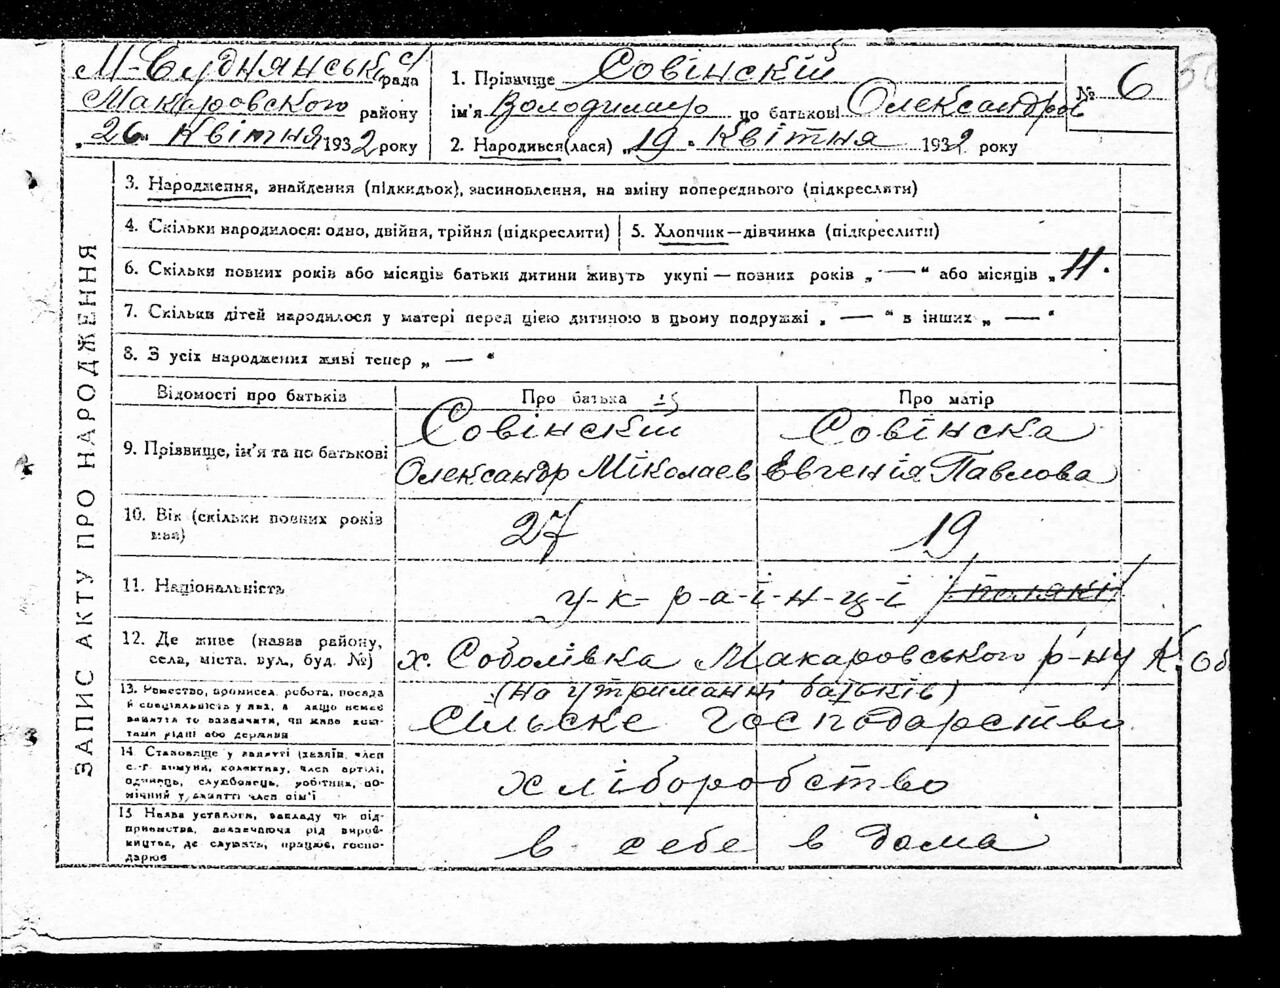 М-Буднянськ рада
Макаровского району
„26" Квітня 1932 року
1. Прізвище Совінский
ім'я Володимир по батькові Олександров
2. Народився(лася) „19" Квітня 1932 року
№ 6
ЗАПИС АКТУ ПРО НАРОДЖЕННЯ
3. Народження, знайдення (підкидьок), засиновлення, на зміну попереднього (підкреслити)
4. Скільки народилося: одно, двійня, трійня (підкреслити)
5. Хлопчик—дівчинка (підкреслити)
6. Скільки повних років або місяців батьки дитини живуть укупі — повних років „—" або місяців „11.
7. Скільки дітей народилося у матері перед цією дитиною в цьому подружжі „—" в інших „—"
8. З усіх народжених живі тепер „—"
Відомості про батьків
Про батька
Про матір
9. Прізвище, ім'я та по батькові
Совінский
Олександр Міколаев
Совінска
Евгенія Павлова
10. Вік (скільки повних років має)
27
19
11. Національність
у-к-р-а-ї-н-ц-і поляки
12. Де живе (назва району,
села, міста, вул., буд. №)
х. Соболівка Макаровського р-ну К. Об
13. Ремество, промисел, робота, посада
й спеціальність у них, а якщо немає
заняття то зазначити, чи живе кош-
тами рідні або держави
(на утриманні батьків)
Сільске господарство
14. Становище у занятті (хазяїн, член
с.-г. комуни, колективу, член артілі,
одинець, службовець, робітник, по-
мічний у занятті член сім'ї
хліборобство
15 Назва установи, закладу чи під-
приємства, зазначаючи рід вироб-
ництва, де служать, працює, госпо-
дарює
в себе в дома